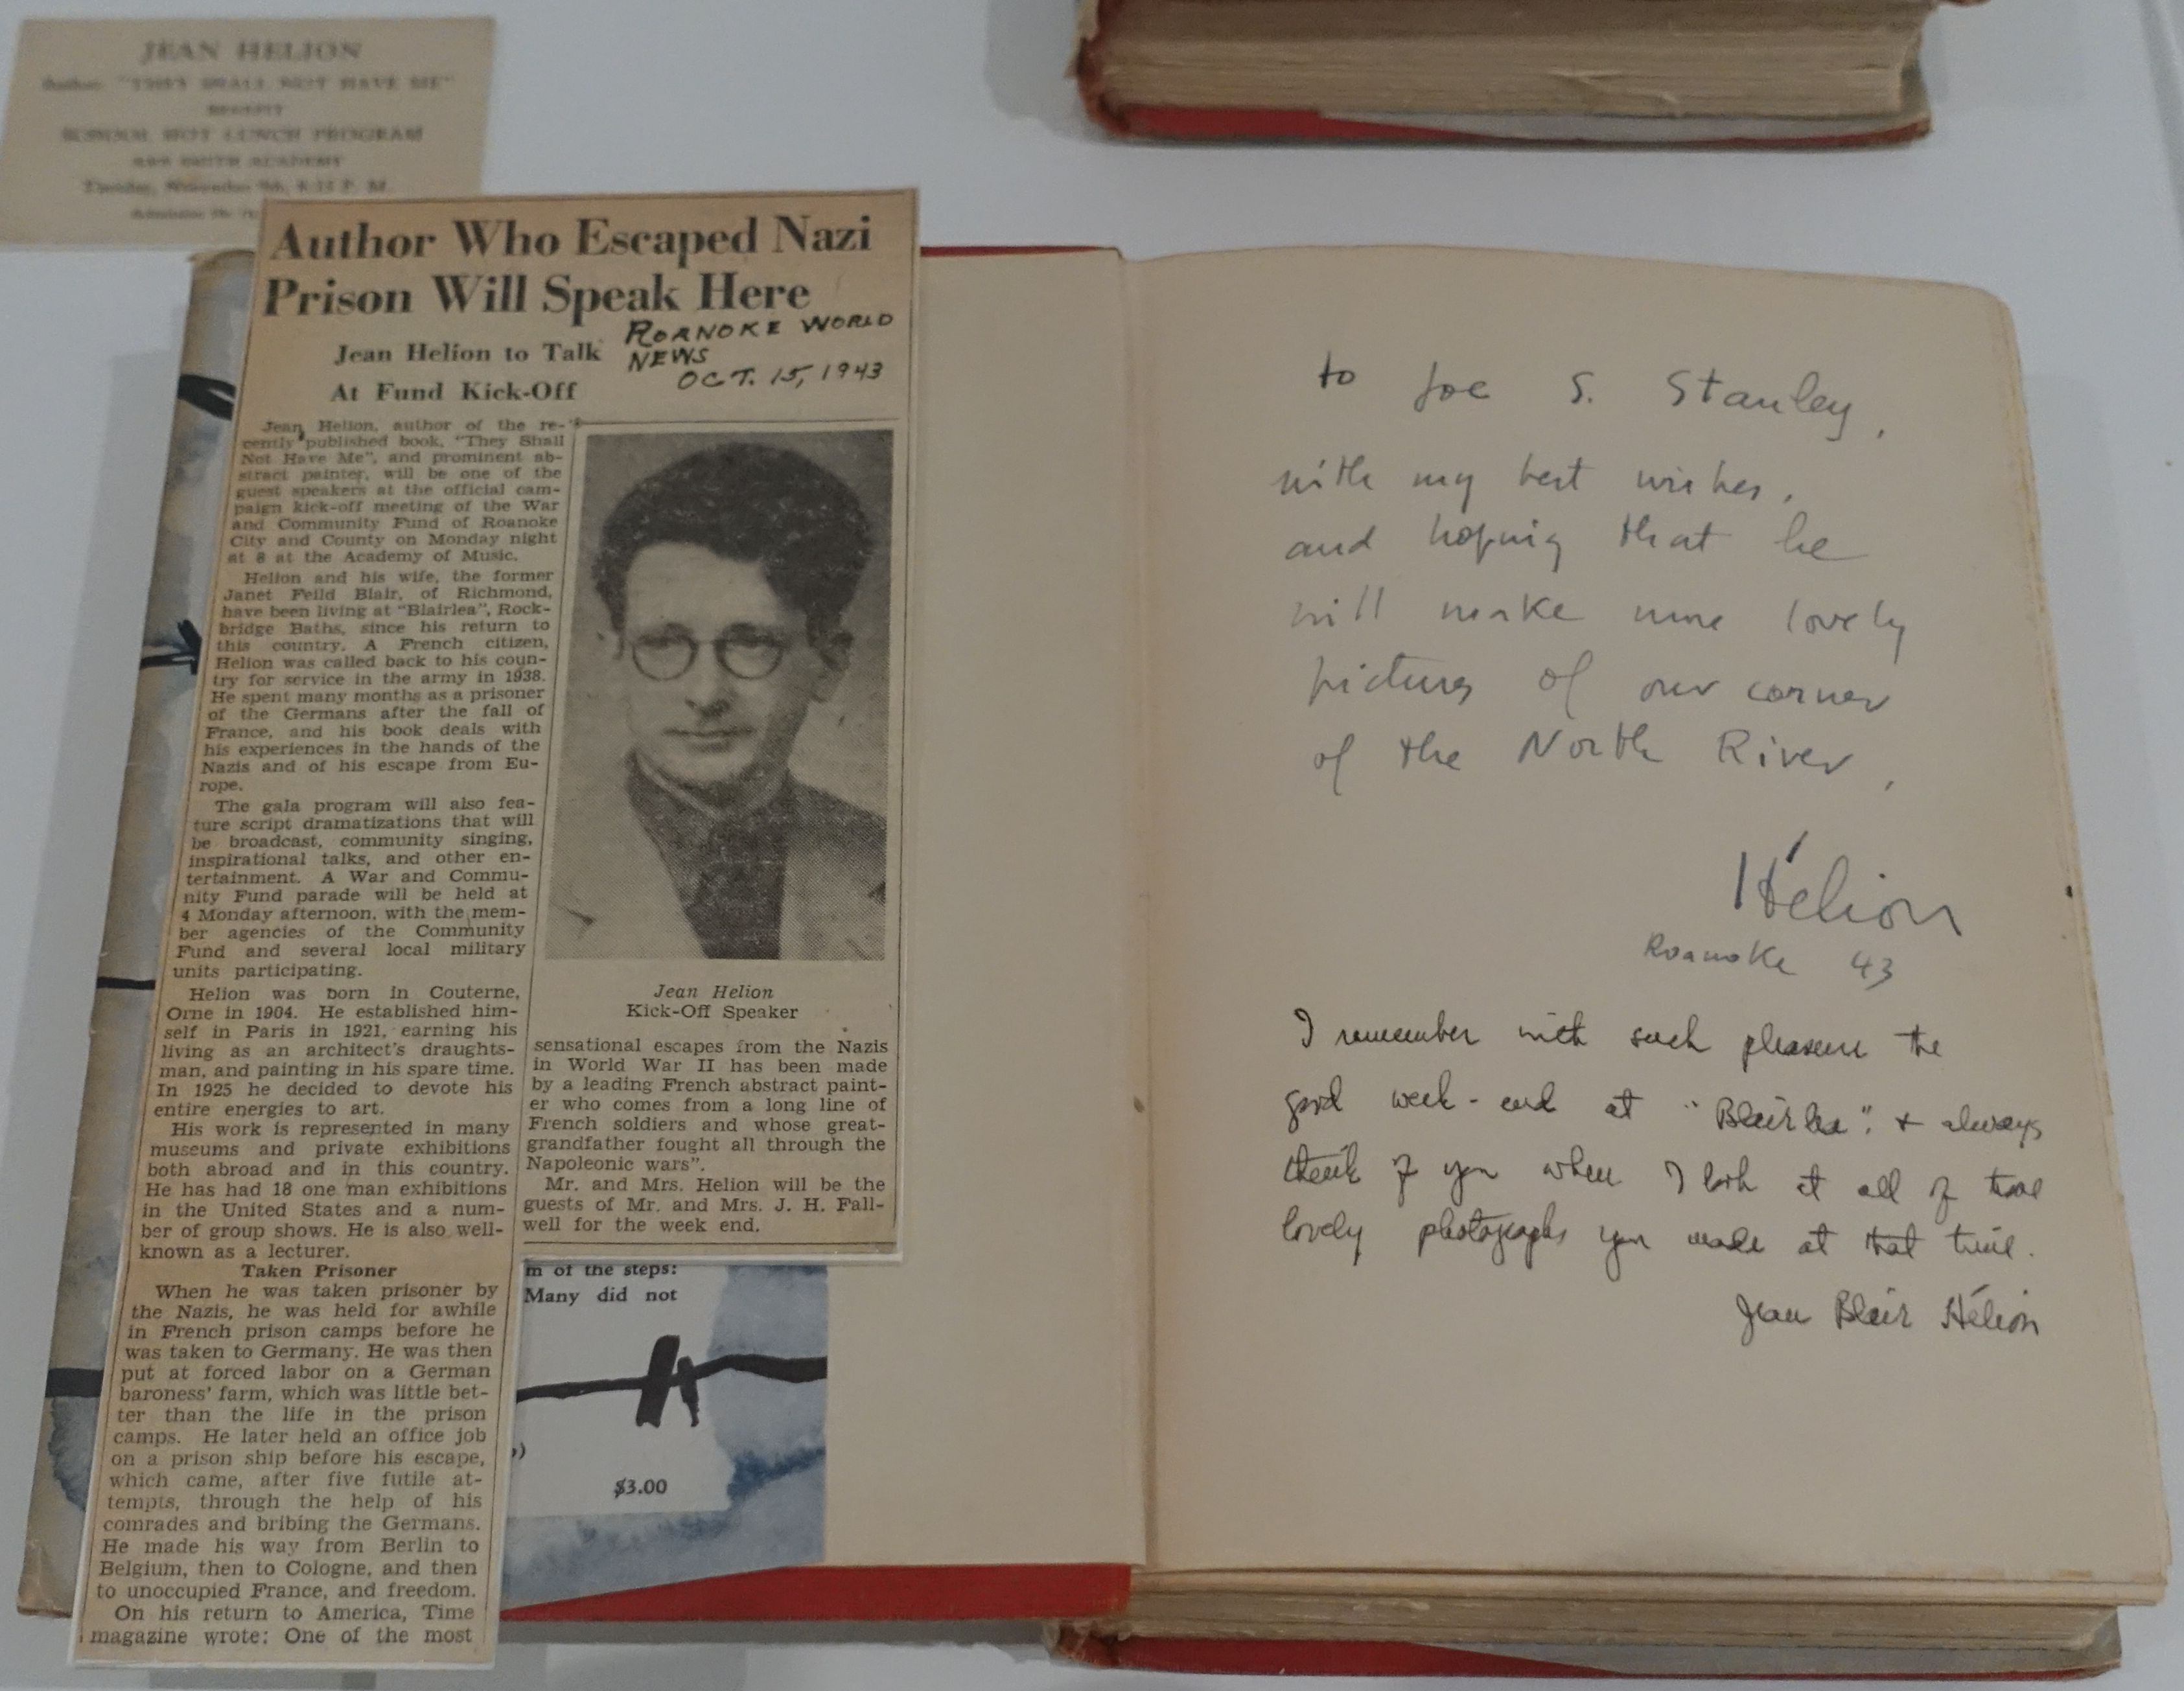 JEAN HELION
Author: "THEY SHALL NOT HAVE ME"
BENEFIT
SCHOOL HOT LUNCH PROGRAM
ANN SMITH ACADEMY
Tuesday, November 9th, 8:15 P. M.
Author Who Escaped Nazi
Prison Will Speak Here
Jean Helion to Talk
At Fund Kick-Off
ROANOKE WORLD
NEWS
OCT. 15, 1943
Jean Helion, author of the re-
cently published book, "They Shall
Not Have Me", and prominent ab-
stract painter, will be one of the
guest speakers at the official cam-
paign kick-off meeting of the War
and Community Fund of Roanoke
City and County on Monday night
at 8 at the Academy of Music.
Helion and his wife, the former
Janet Feild Blair, of Richmond,
have been living at "Blairlea", Rock-
bridge Baths, since his return to
this country. A French citizen,
Helion was called back to his coun-
try for service in the army in 1938.
He spent many months as a prisoner
of the Germans after the fall of
France, and his book deals with
his experiences in the hands of the
Nazis and of his escape from Eu-
rope.
The gala program will also fea-
ture script dramatizations that will
be broadcast, community singing,
inspirational talks, and other en-
tertainment. A War and Commu-
nity Fund parade will be held at
4 Monday afternoon, with the mem-
ber agencies of the Community
Fund and several local military
units participating.
Helion was born in Couterne,
Orne in 1904. He established him-
self in Paris in 1921, earning his
living as an architect's draughts-
man, and painting in his spare time.
In 1925 he decided to devote his
entire energies to art.
His work is represented in many
museums and private exhibitions
both abroad and in this country.
He has had 18 one man exhibitions
in the United States and a num-
ber of group shows. He is also well-
known as a lecturer.
Taken Prisoner
When he was taken prisoner by
the Nazis, he was held for awhile
in French prison camps before he
was taken to Germany. He was then
put at forced labor on a German
baroness' farm, which was little bet-
ter than the life in the prison
camps. He later held an office job
on a prison ship before his escape,
which came, after five futile at-
tempts, through the help of his
comrades and bribing the Germans.
He made his way from Berlin to
Belgium, then to Cologne, and then
to unoccupied France, and freedom.
On his return to America, Time
magazine wrote: One of the most
Jean Helion
Kick-Off Speaker
sensational escapes from the Nazis
in World War II has been made
by a leading French abstract paint-
er who comes from a long line of
French soldiers and whose great-
grandfather fought all through the
Napoleonic wars".
Mr. and Mrs. Helion will be the
guests of Mr. and Mrs. J. H. Fall-
well for the week end.
m of the steps:
Many did not
)
$3.00
to Joe S. Stanley,
with my best wishes,
and hoping that he
will make more lovely
pictures of our corner
of the North River,
Hélion
Roanoke 43
I remember with such pleasure the
good week-end at "Blairlea". + always
think of you when I look at all of those
lovely photographs you made at that time.
Jean Blair Hélion